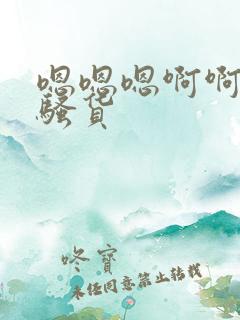 嗯嗯嗯啊啊
骚货
咚宝
未经同意禁止转载